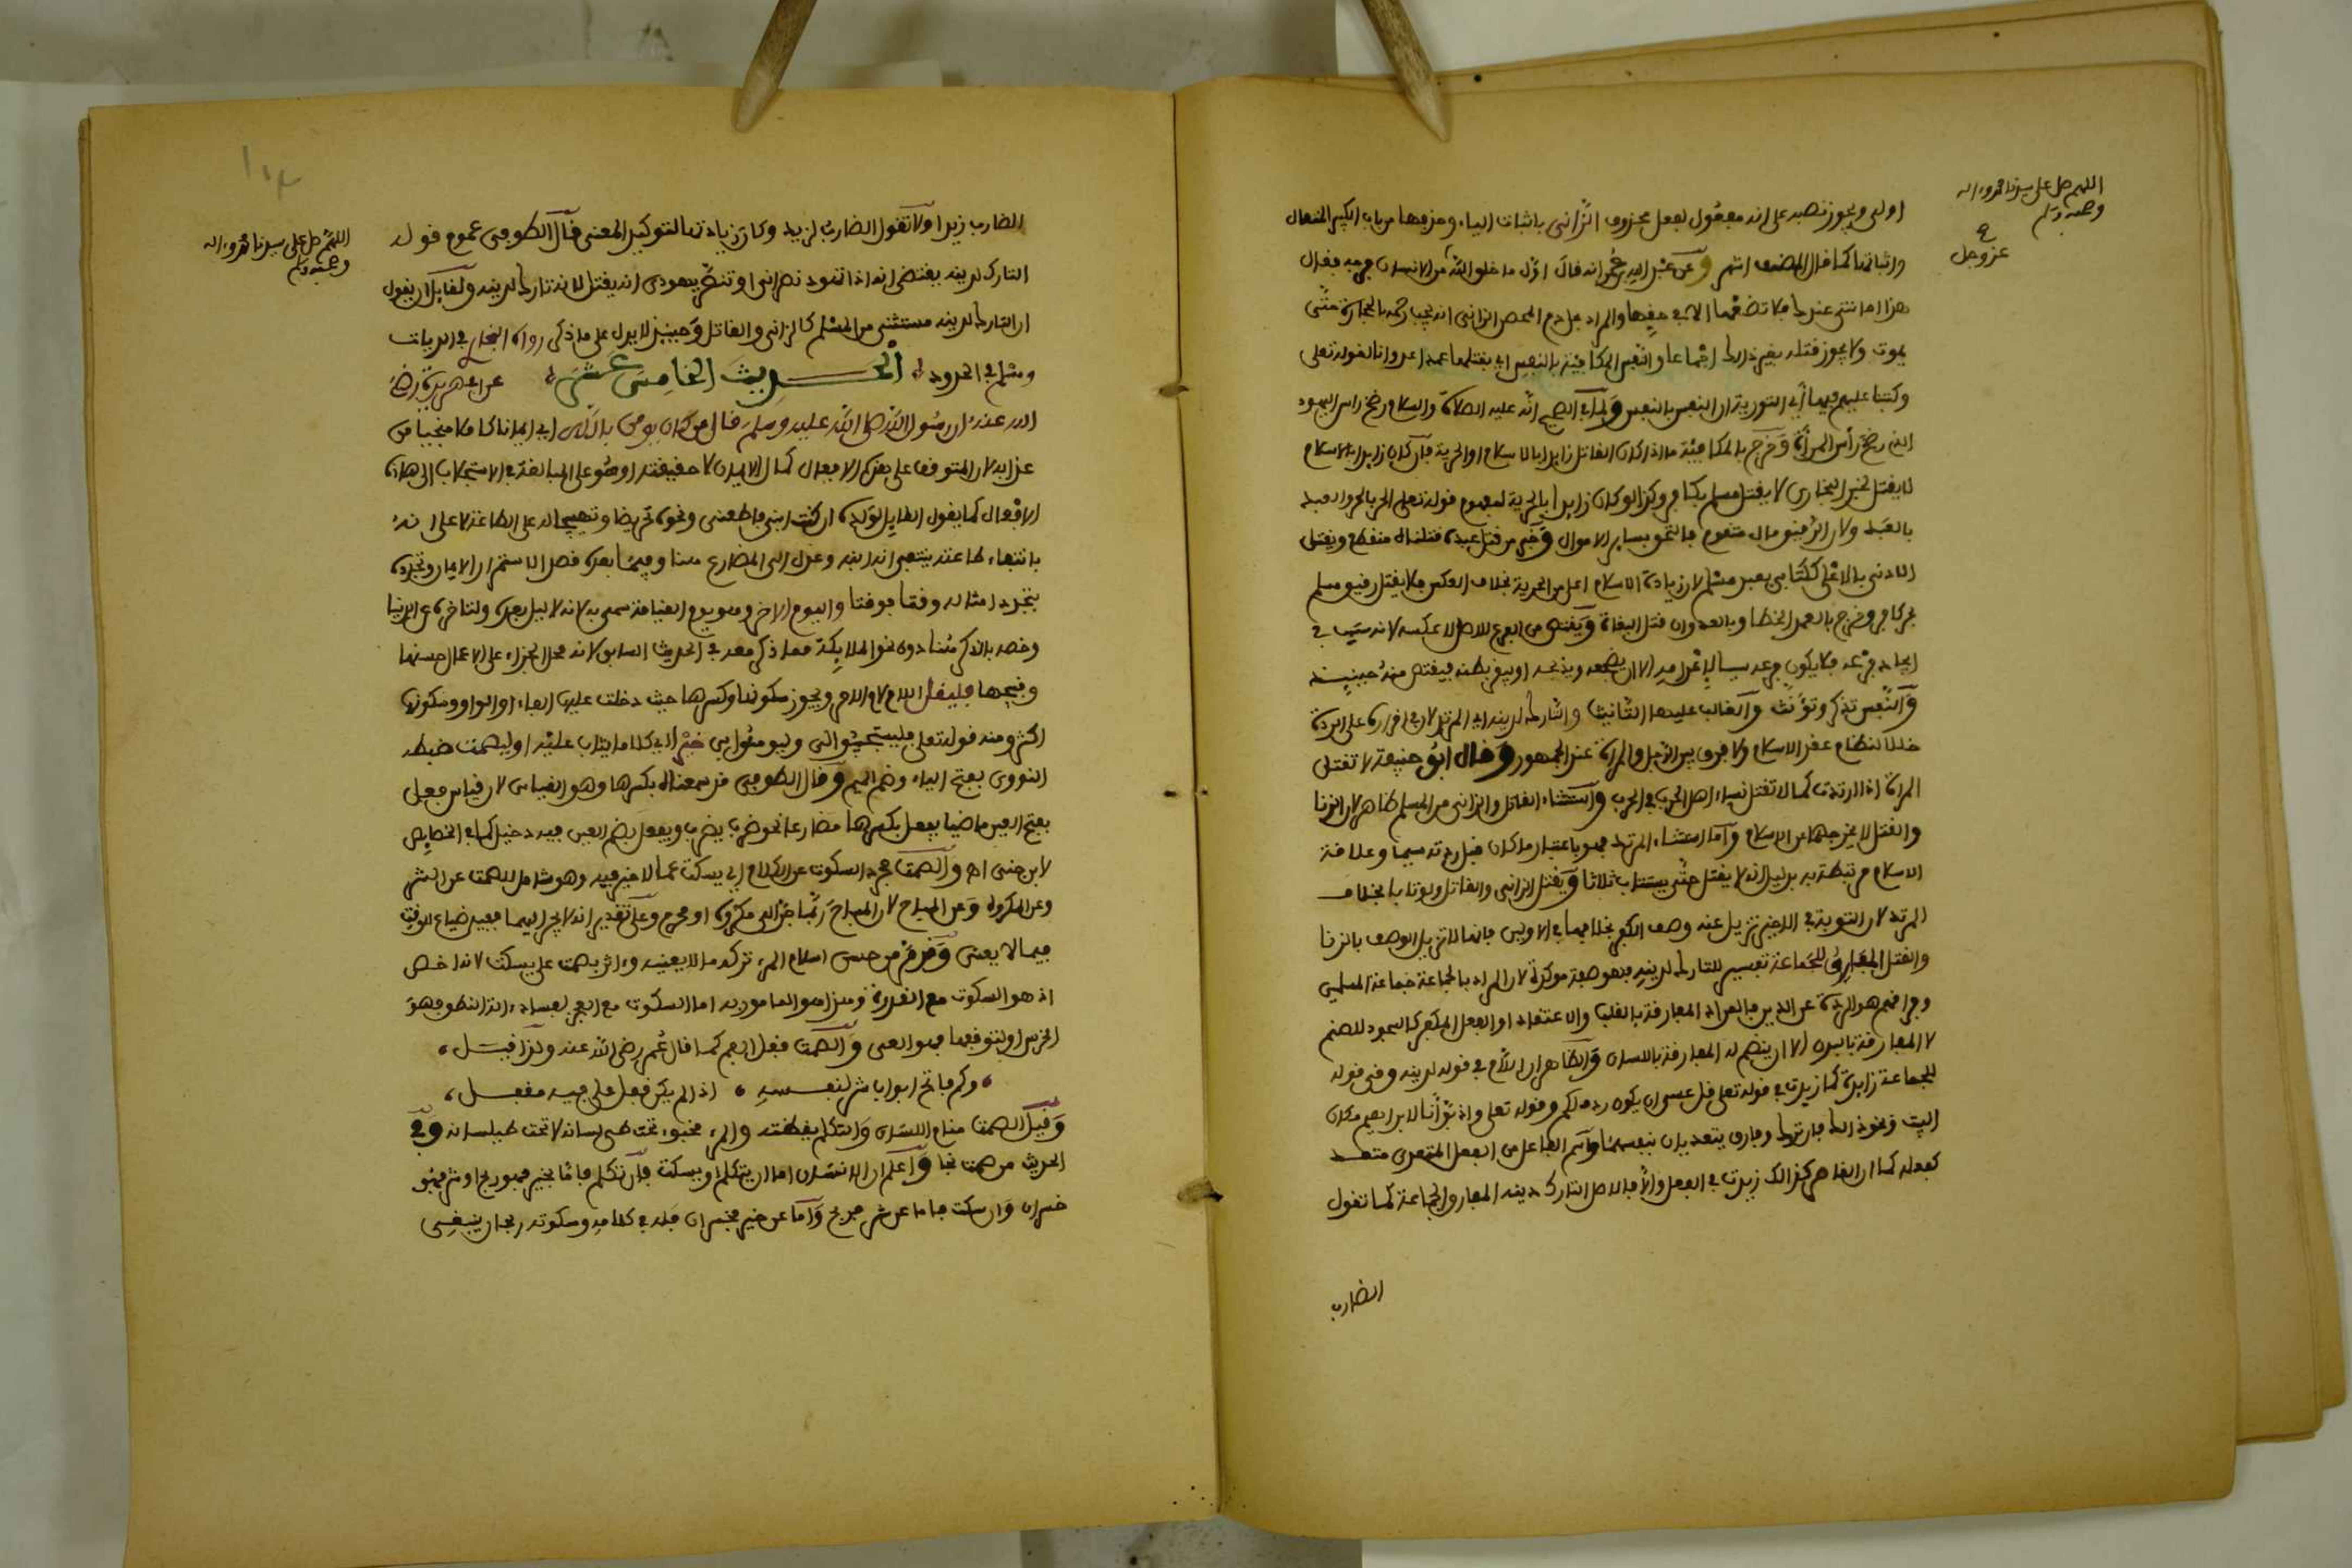 اللهم صل على سيدنا محمد وءاله
وصحبه وسلم
عز وجل
اولى ويجوز نصبه على انه مفعول لفعل محذوف الزانى باثبات الياء وحذفها من باب الكبير المتعال
واثباتها كما قال المصنف اشهر وعن عبد الله بن عمر انه قال اول ما خلق الله من الانسان فرجه فقال
هذا امانتى عندك فلا تضعها الا فى حقها والمراد بحل دم المحصن الزانى انه يجب رجمه بالحجارة حتى
يموت ولا يجوز قتله بغير ذلك اجماعا والنفس المكافية بالنفس اى بقتلها عمدا عدوانا لقوله تعلى
وكتبنا عليهم فيها اى التورية ان النفس بالنفس ولما فى الصحيح انه عليه الصلاة والسلام رضخ راس اليهودى
الذى رضخ رأس المرأة وخرج بالمكافية ما اذا كان القاتل زايدا بالاسلام او الحرية فان كان زايدا بالاسلام
لا يقتل لخبر البخارى لا يقتل مسلم بكافر وكذا لو كان زايدا بالحرية لمفهوم قوله تعلى الحر بالحر والعبد
بالعبد ولان الرقيق مال متقوم فالتحق بساير الاموال وخبر من قتل عبده قتلناه منقطع ويقتل
الادنى بالاعلى ككتابى بعبد مسلم لان زيادة الاسلام اعلى من الحرية بخلاف العكس فلا يقتل رقيق مسلم
بحر كافر وخرج بالعمد الخطا وبالعدوان قتل البغاة ويقتص من الفرع للاصل لا عكسه لانه سبب فى
ايجاد فرعه فلا يكون فرعه سببا لاعدامه الا ان يضجعه ويذبحه او يبقر بطنه فيقتص منه حينيذ
والنفس تذكر وتؤنث والغالب عليها التانيث والتارك لدينه اى المرتد لان فى اقراره على الردة
خللا لنظام عقد الاسلام ولا فرق بين الرجل والمراة عند الجمهور وقال ابو حنيفة لا تقتل
المراة اذا ارتدت كما لا تقتل نساء اهل الحرب فى الحرب واستثناء القاتل والزانى من المسلم ظاهر لان الزنا
والقتل لا يخرجهما عن الاسلام واما استثناء المرتد فهو باعتبار ما كان قبل ردته سيما وعلاقة
الاسلام مرتبطة به بدليل انه لا يقتل حتى يستتاب ثلاثا ويقتل الزانى والقاتل ولو تابا بخلاف
المرتد لان التوبة فى الاخير تزيل عنه وصف الكفر بخلافها فى الاولين فانها لا تزيل الوصف بالزنا
والقتل المفارق للجماعة تفسير للتارك لدينه فهو صفة موكدة لان المراد بالجماعة جماعة المسلمين
وفراقهم هو الردة عن الدين فالمراد المفارقة بالقلب والاعتقاد او الفعل المكفر كالسجود للصنم
لا المفارقة بالبدن الا ان ينضم له المفارقة باللسان والظاهر ان اللام فى قوله لدينه وفى قوله
للجماعة زايدة كما زيدت فى قوله تعلى قل عسى ان يكون ردف لكم وقوله تعلى واذ بوأنا لابراهيم مكان
البيت ونحو ذلك فان ترك وفارق يتعديان بنفسهما واسم الفاعل من الفعل المتعدى متعد
كفعله كما ان القاهر كذلك زيدت فى الفعل واذا فالاصل التارك دينه المفارق الجماعة كما تقول
الضارب
اللهم صل على سيدنا محمد وءاله
وصحبه وسلم
الضارب زيدا ولا تقول الضارب لزيد وكان زيادتها لتوكيد المعنى قال الطوفى عموم قوله
التارك لدينه يقتضى انه اذا تهود نصرانى او تنصر يهودى انه يقتل لانه تارك لدينه ولقايل ان يقول
ان التارك لدينه مستثنى من المسلم كالزانى والقاتل وحينيذ لا يدل على ما ذكر رواه البخارى فى الديات
ومسلم فى الحدود الحديث الخامس عشر عن ابى هريرة رضى
الله عنه ان رسول الله صلى الله عليه وسلم قال من كان يومن بالله اى ايمانا كاملا منجيا من
عذابه لان المتوقف على هذه الافعال كمال الايمان لا حقيقته او هو على المبالغة فى الاستجلاب الى هذه
الافعال كما يقول القايل لولده ان كنت ابنى فاطعنى ونحوه تحريضا وتهييجا له على الطاعة لا على انه
بانتفاء طاعته ينتفى انه ابنه وعدل الى المضارع هنا وفيما بعده قصدا لاستمرار الايمان وتجدده
بتجدد امثاله وقتا فوقتا واليوم الاخر وهو يوم القيامة سمى به لانه لا ليل بعده ولتاخره عن الدنيا
وخصه بالذكر هنا دون نحو الملايكة مما ذكر معه فى الحديث السابق لانه محل الجزاء على الاعمال حسنها
وقبيحها فليقل اللام لام الامر ويجوز سكونها وكسرها حيث دخلت عليها الفاء او الواو وسكونها
اكثر ومنه قوله تعلى فليستجيبوا لى وليومنوا بى خيرا اى كلاما يثاب عليه او ليصمت ضبطه
النووى بفتح الياء وضم الميم وقال الطوفى قد سمعناه بكسرها وهو القياس لان قياس فعل
بفتح العين ماضيا يفعل بكسرها مضارعا نحو ضرب يضرب ويفعل بضم العين فيه دخيل كما فى الخصايص
لابن جنى اه والصمت مجرد السكوت عن الكلام اى يسكت عما لا خير فيه وهو شامل للصمت عن الشر
وعن المكروه وعن المباح لان المباح ربما جر الى مكروه او محرم وعلى تقدير انه لا يجر اليهما ففيه ضياع الوقت
فيما لا يعنى وقد مر من حسن اسلام المرء تركه ما لا يعنيه وءاثر يصمت على يسكت لانه اخص
اذ هو السكوت مع القدرة وهذا هو المامور به اما السكوت مع العجز لفساد ءالة النطق فهو
الخرس او لتوقفها فهو العى والصمت قفل الفم كما قال عمر رضى الله عنه ولذا قيل،
، وكم فاتح ابواب شر لنفسه ، اذا لم يكن قفل على فيه مقفل،
وقيل الصمت منام اللسان والتكلم يقظته والمرء مخبوء تحت طى لسانه لا تحت طيلسانه وفى
الحديث من صمت نجا واعلم ان الانسان اما ان يتكلم او يسكت فان تكلم فاما بخير فهو ربح او شر فهو
خسران وان سكت فاما عن شر فربح واما عن خير فخسران فله فى كلامه وسكوته ربحان ينبغى